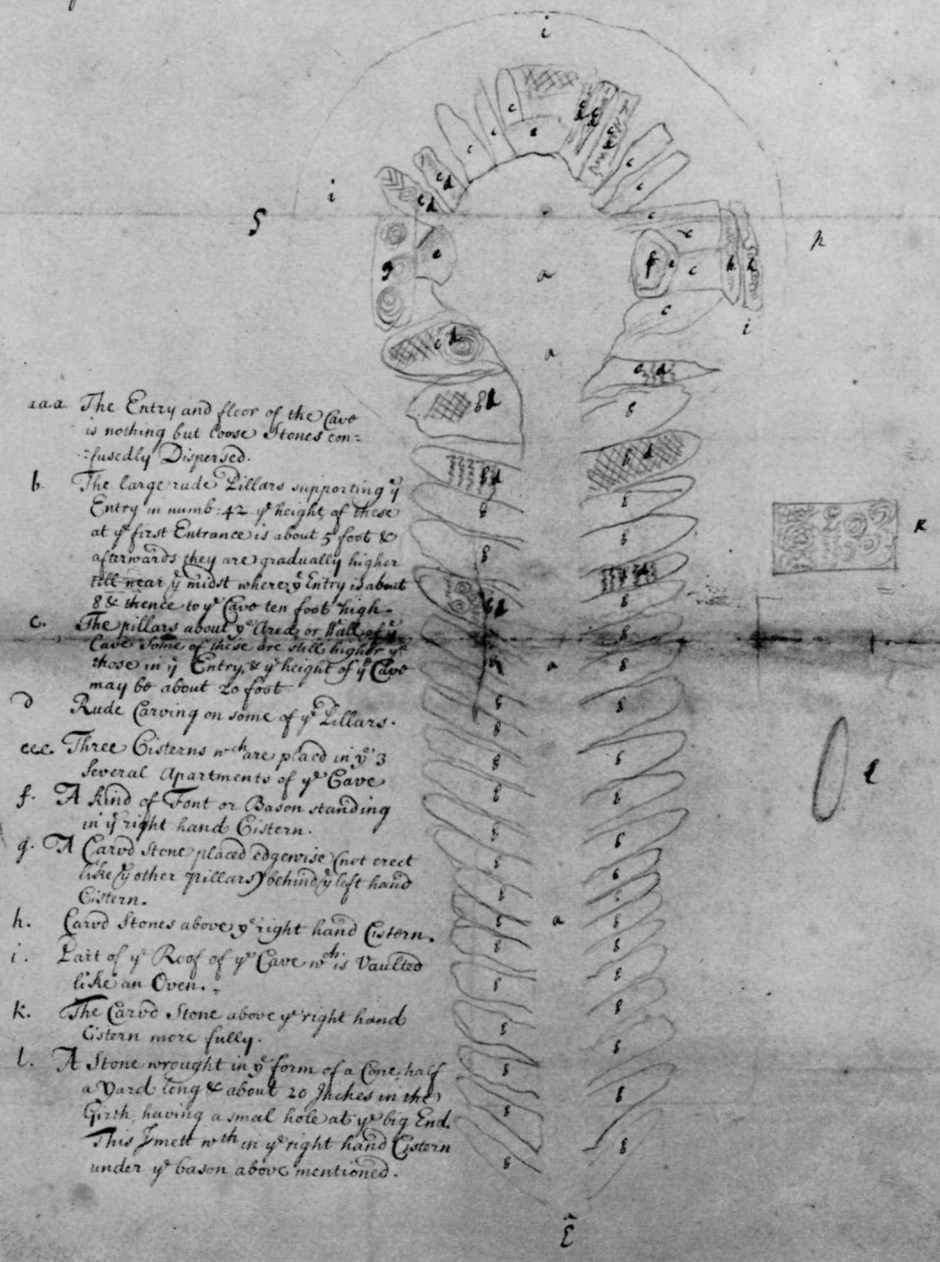 a.a.a. The Entry and floor of the Cave
is nothing but loose Stones con=
=fusedly Dispersed.
b. The large rude Pillars supporting yͤ
Entry in numb: 42 yͤ height of these
at yͤ first Entrance is about 5 foot &
afterwards they are gradually higher
till near yͤ midst where yͤ Entry is about
8 & thence to yͤ Cave ten foot high.
c. The pillars about yͤ Area, or Wall of yͤ
Cave some of these are still higher yⁿ
those in yͤ Entry, & yͤ height of yͤ Cave
may be about 20 foot
D Rude Carving on some of yͤ Pillars.
eee. Three Cisterns wᶜʰ are placed in yͤ 3
Several Apartments of yͤ Cave
f. A kind of Font or Bason standing
in yͤ right hand Cistern.
g. A Carvd Stone placed edgewise (not erect
like yͤ other pillars) behind yͤ left hand
Cistern.
h. Carvd Stones above yͤ right hand Cistern.
i. Part of yͤ Roof of yͤ Cave wᶜʰ is Vaulted
like an Oven.
k. The Carvd Stone above yͤ right hand
Cistern more fully.
l. A Stone wrought in yͤ form of a Cone half
a Yard long & about 20 Inches in the
Girth, having a small hole at yͤ big End.
This I mett wᵗʰ in yͤ right hand Cistern
under yͤ bason above mentioned.
i
i
S
g
a
f
h
h
i
a
K
a
l
a
E